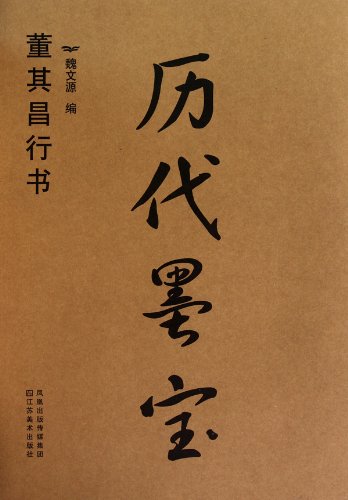 历代墨宝
魏文源 编
董其昌行书
凤凰出版传媒集团
江苏美术出版社